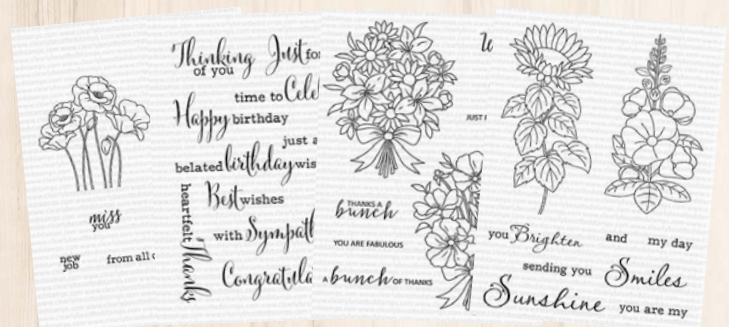 miss
you
new
job
from all
Thinking
of you
Just for
time to
Happy birthday
just a
belated birthday
Best wishes
heartfelt Thanks
with
THANKS A
bunch
YOU ARE FABULOUS
a bunch OF THANKS
JUST
you Brighten and my day
sending you Smiles
Sunshine you are my